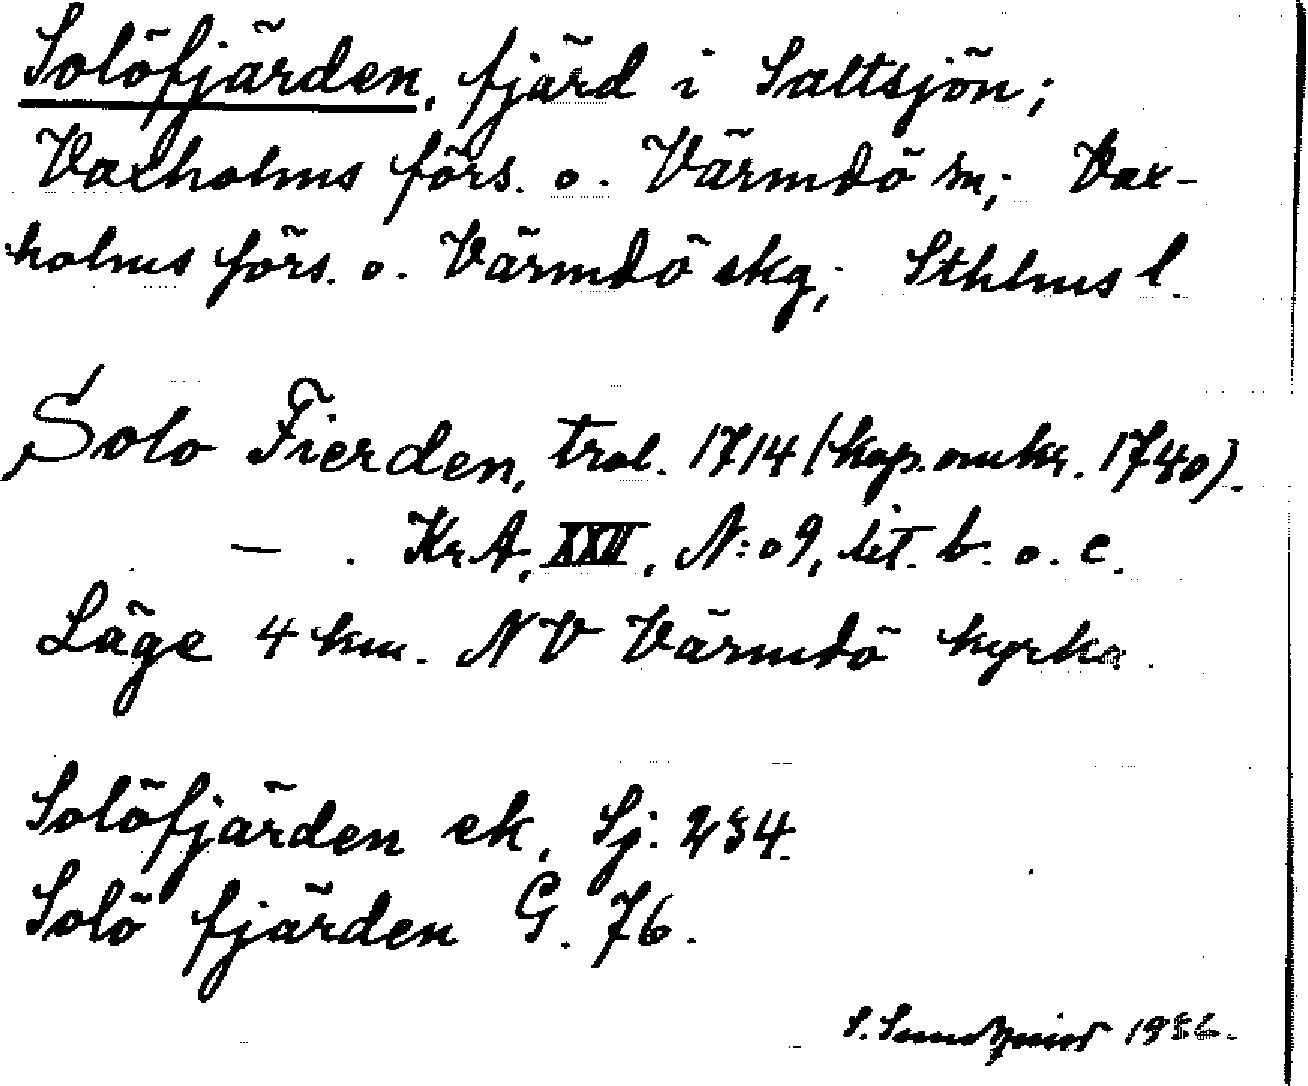 Solöfjärden, fjärd i Saltsjön;
Vaxholms förs. o. Värmdö sn; Vax-
holms förs. o. Värmdö skg; Sthlms l.
Solo Fierden, trol. 1714 (kop. omkr. 1740).
— . KrA, XXVI, N:o 9, lit. b. o. c.
Läge 4 km. NV Värmdö kyrka.
Solöfjärden ek, Sj. 234.
Solö fjärden G. 76.
S. Sundqvist